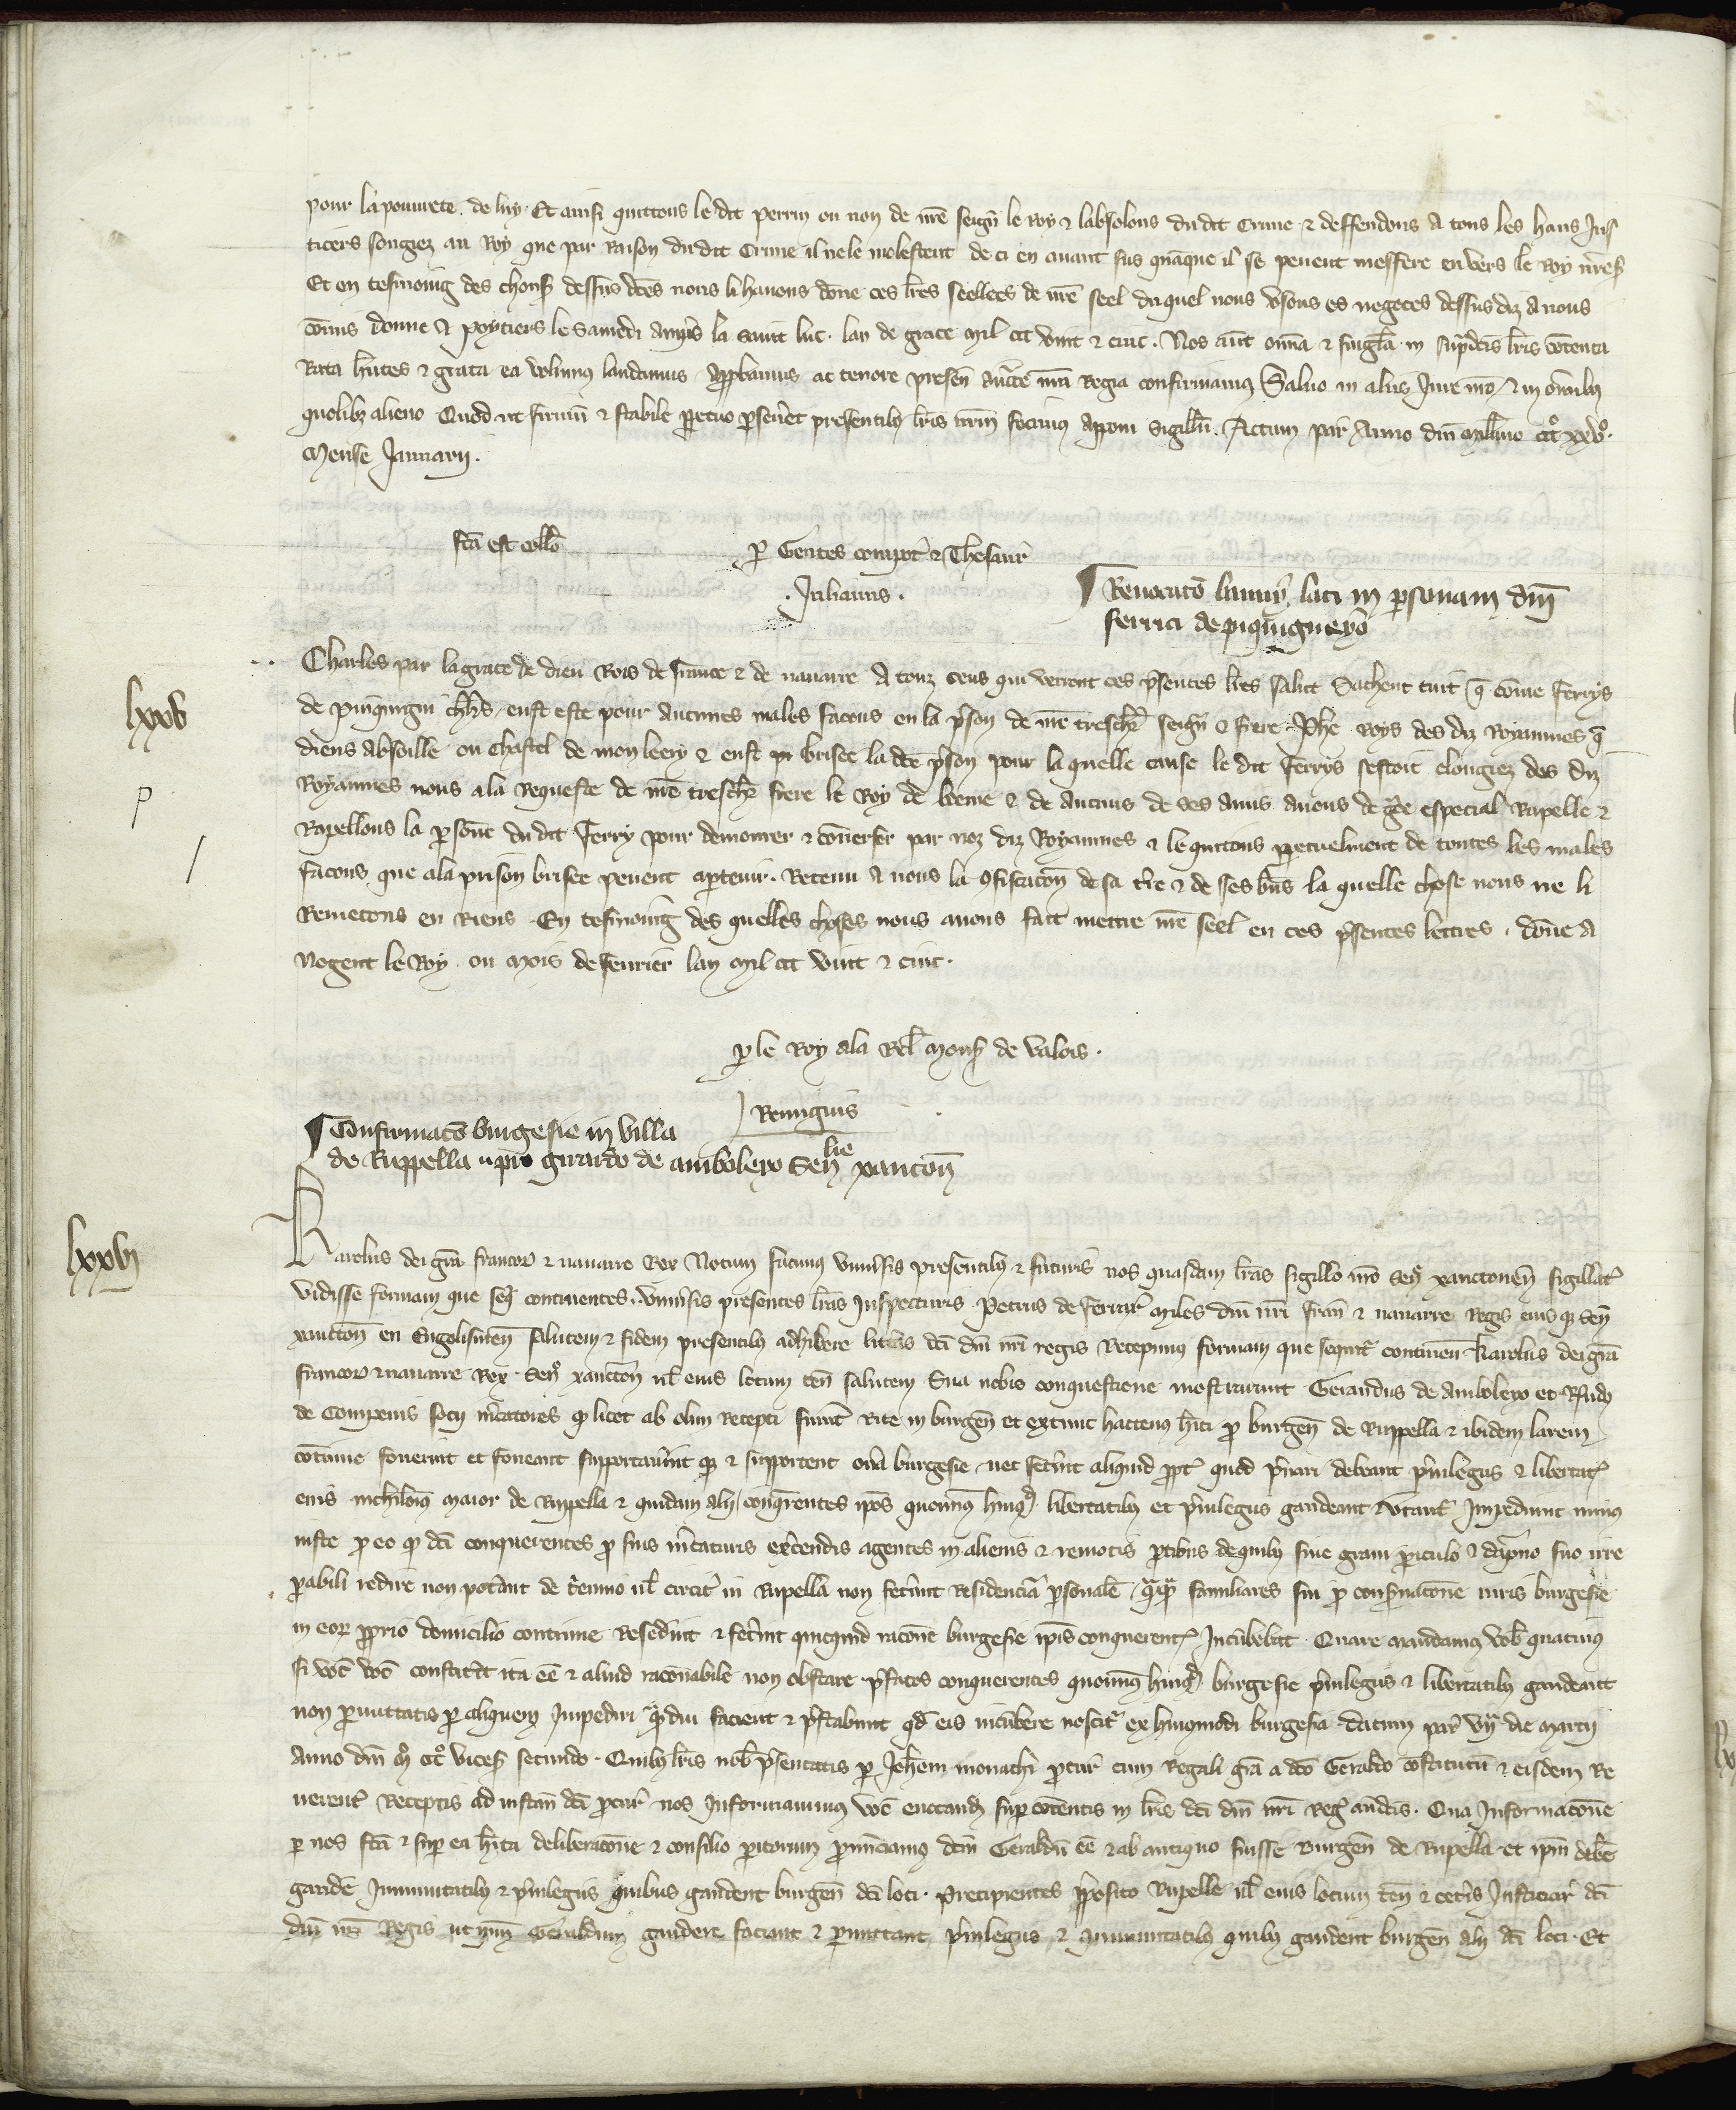 pour la pourete de luy. Et ainsi quittons le dit Perrin ou non de nre seign̄ le Roy & labsolons du dit Crime & deffendons a tous les haus Jus
ticiers sougiez au Roy que par Raison du dit Crime il ne le molestent de ci en avant sus quāque il se peuent meffere envers le Roy nr̄e
Et en tesmoing des chous dessus dc̄es nous li havons done ces lr̄es seellees de nr̄e seel duquel nous usons es negoces dessus diz a nous
cōmis donne a Poytiers le samedi apres la saint luc. lan de grace mil ccc vint & cinc. Nos aut̄ om̄ia & singl̄a in supradc̄is lr̄is cōtenta
Rata hn̄tes & grata ea volumus laudamus approbamus ac tenore presen̄ auct̄te nr̄a Regia confirmamus Salvo in aliis Jure nr̄o & in om̄ibus
quolibz alieno Quod ut firmū & stabile perpetuo perseveret presentibus lr̄is nr̄m fecimus apponi Sigillū. Actum par̄ Anno dn̄i mill̄mo ccc° xxv°.
Mense Januarii.
fc̄a est coll̄o
p̄ Gentes compot̄ & Thesaur̄
. Julianus .
¶ Revocat̄o bannii lati in personam dn̄i
ferrici de piquigneyo
lxxv
Charles par la grace de dieu Rois de france & de navarre A touz ceus qui verront ces p̄sentes lr̄es salut Sachent tuit q̄ cōme Ferrys
de pinquigni chl̄rs, eust este pour aucunes males facons en la p̄son de nr̄e treschr̄ seign̄ & frere Ph̄e Roys des diz Royaumes q̄
diens absoille ou chastel de mon leery & eust p̄ brisee la dc̄e p̄son pour la quelle cause le dit Ferrys sestoit elongiez des diz
Royaumes nous a la Requeste de nr̄e treschr̄ frere le Roy de boeme & de aucuns de ses amis avons de gr̄ce especial Rapelle &
Rapellons la personē du dit Ferry pour demourer & cōverser par noz diz Royaumes & le quittons perpetuelment de toutes les males
p
facons que a la prison brisee peuent apartenir. Retenu a nous la cōfiscacōn de sa tr̄re & de ses bn̄s la quelle chose nous ne li
/
Remetons en Riens. En tesmoing des quelles choses nous avons fait mettre nr̄e seel en ces p̄sentes lettres. dōne a
Nogent le Roy. ou mois de fevrier lan mil ccc vint & cinc.
p̄ le Roy a la Rel̄ Mons̄ de Valois.
Remigius
¶ Confirmac̄o burgesie in villa
de Ruppella pro girardo de amboleyo Sen̄ lie xancton̄
lxxvj
Karolus dei gr̄a francor̄ & navarre Rex Notum facimus universis presentibus & futuris nos quasdam lr̄as sigillo nr̄o Sen̄ xanctonen̄ sigillat̄
vidisse formam que seq̄ continentes. Universis presentes lr̄as Inspecturis Petrus de ferrar̄ miles dn̄i nr̄i fran̄ & navarre Regis eiusq̄ sen̄
xancton̄ en Engolismen̄ salutem & fidem presentibus adhibere litt̄is dc̄i dn̄i nr̄i regis Recepimus formam que sequit̄ continen̄ Karolus dei gr̄a
francor̄ & navarre Rex. Sen̄ xancton̄ vl̄ eius locum ten̄ salutem Sua nobis conquestione monstrarunt Gerardus de Amboleyo et Rn̄dus
de Compenis socii m̄catores q̄ licet ab olim recepti fuer̄t Rite in burgen̄ et extunc hactenus h̄iti p̄ burgen̄ de Ruppella & ibidem larem
cōtinue foverint et foveant supportaver̄int q̄ & supportent on̄a burgesie, nec fecer̄int aliquid propt̄ quod p̄vari debeant p̄vilegiis & libertat̄
eius nichilomi͂ maior de Ruppella & quidam alii conquer̄entes ip̄os quominus hmōi libertatibus et p̄vilegiis gaudeant & utant̄ Impediunt minus
iuste p̄ eo q̄ dc̄i conquerentes p̄ suis m̄caturis exercendis agentes in alienis & remotis p̄tibus de quibus sine gravi periculo & dāpno suo irre
p̄abili redire non poter̄ant de t̄ennio vl̄ circit̄ in Rupella non fecer̄unt Residenciā p̄sonale quāquā familiares sui p̄ conservacōne iuris burgesie
in eor̄ proprio domicilio continue Resedint & fecer̄int quicquid racōne burgesie ip̄is conquerent̄ Incūbebat. Quare mandamus vob̄ quatinus
si voc̄ voc̄ constiter̄it ita eē & aliud racōnabile non obstare p̄fatos conquerentes quominus hmōi burgesie p̄vilegiis & libertatibus gaudeant
non p̄mittatis p̄ aliquem Impediri q̄diu facient & p̄stabunt qd̄ eis incūbere noscit̄ ex hmōi burgesia. datum par̄ vij die marcii
Anno dn̄i m̄ ccc° vices̄ secundo. Quibus lr̄is nob̄ p̄sentatis p̄ Joh̄em monachi procur̄ cum Regali gr̄a a dc̄o Geraldo cōstitutū & eisdem Re
verent̄ Receptis ad instan̄ dc̄i procur̄ nos Informavimus voc̄ evocand̄ sup̄ cōtentis in lr̄is dc̄i dn̄i nr̄i Reḡ audit̄is. Qua Informacōne
p̄ nos fc̄a & sup̄ ea h̄ita deliberacōne & consilio peritorum pronūciamus dc̄m Geraldū eē & ab antiquo fuisse burgen̄ de Rupella et ip̄m debe͂
gaude͂ Immunitatibus & p̄vilegiis quibus gaudent burgen̄ dc̄i loci. Precipientes p̄posito Rupelle vl̄ eius locum ten̄ & ceter̄is Justiciar̄ dc̄i
dn̄i nr̄i Regis ut ip̄m Geraldum gaudere faciant & p̄mittant p̄vilegiis & immunitatibus quibus gaudent burgen̄ alii dc̄i loci. Et